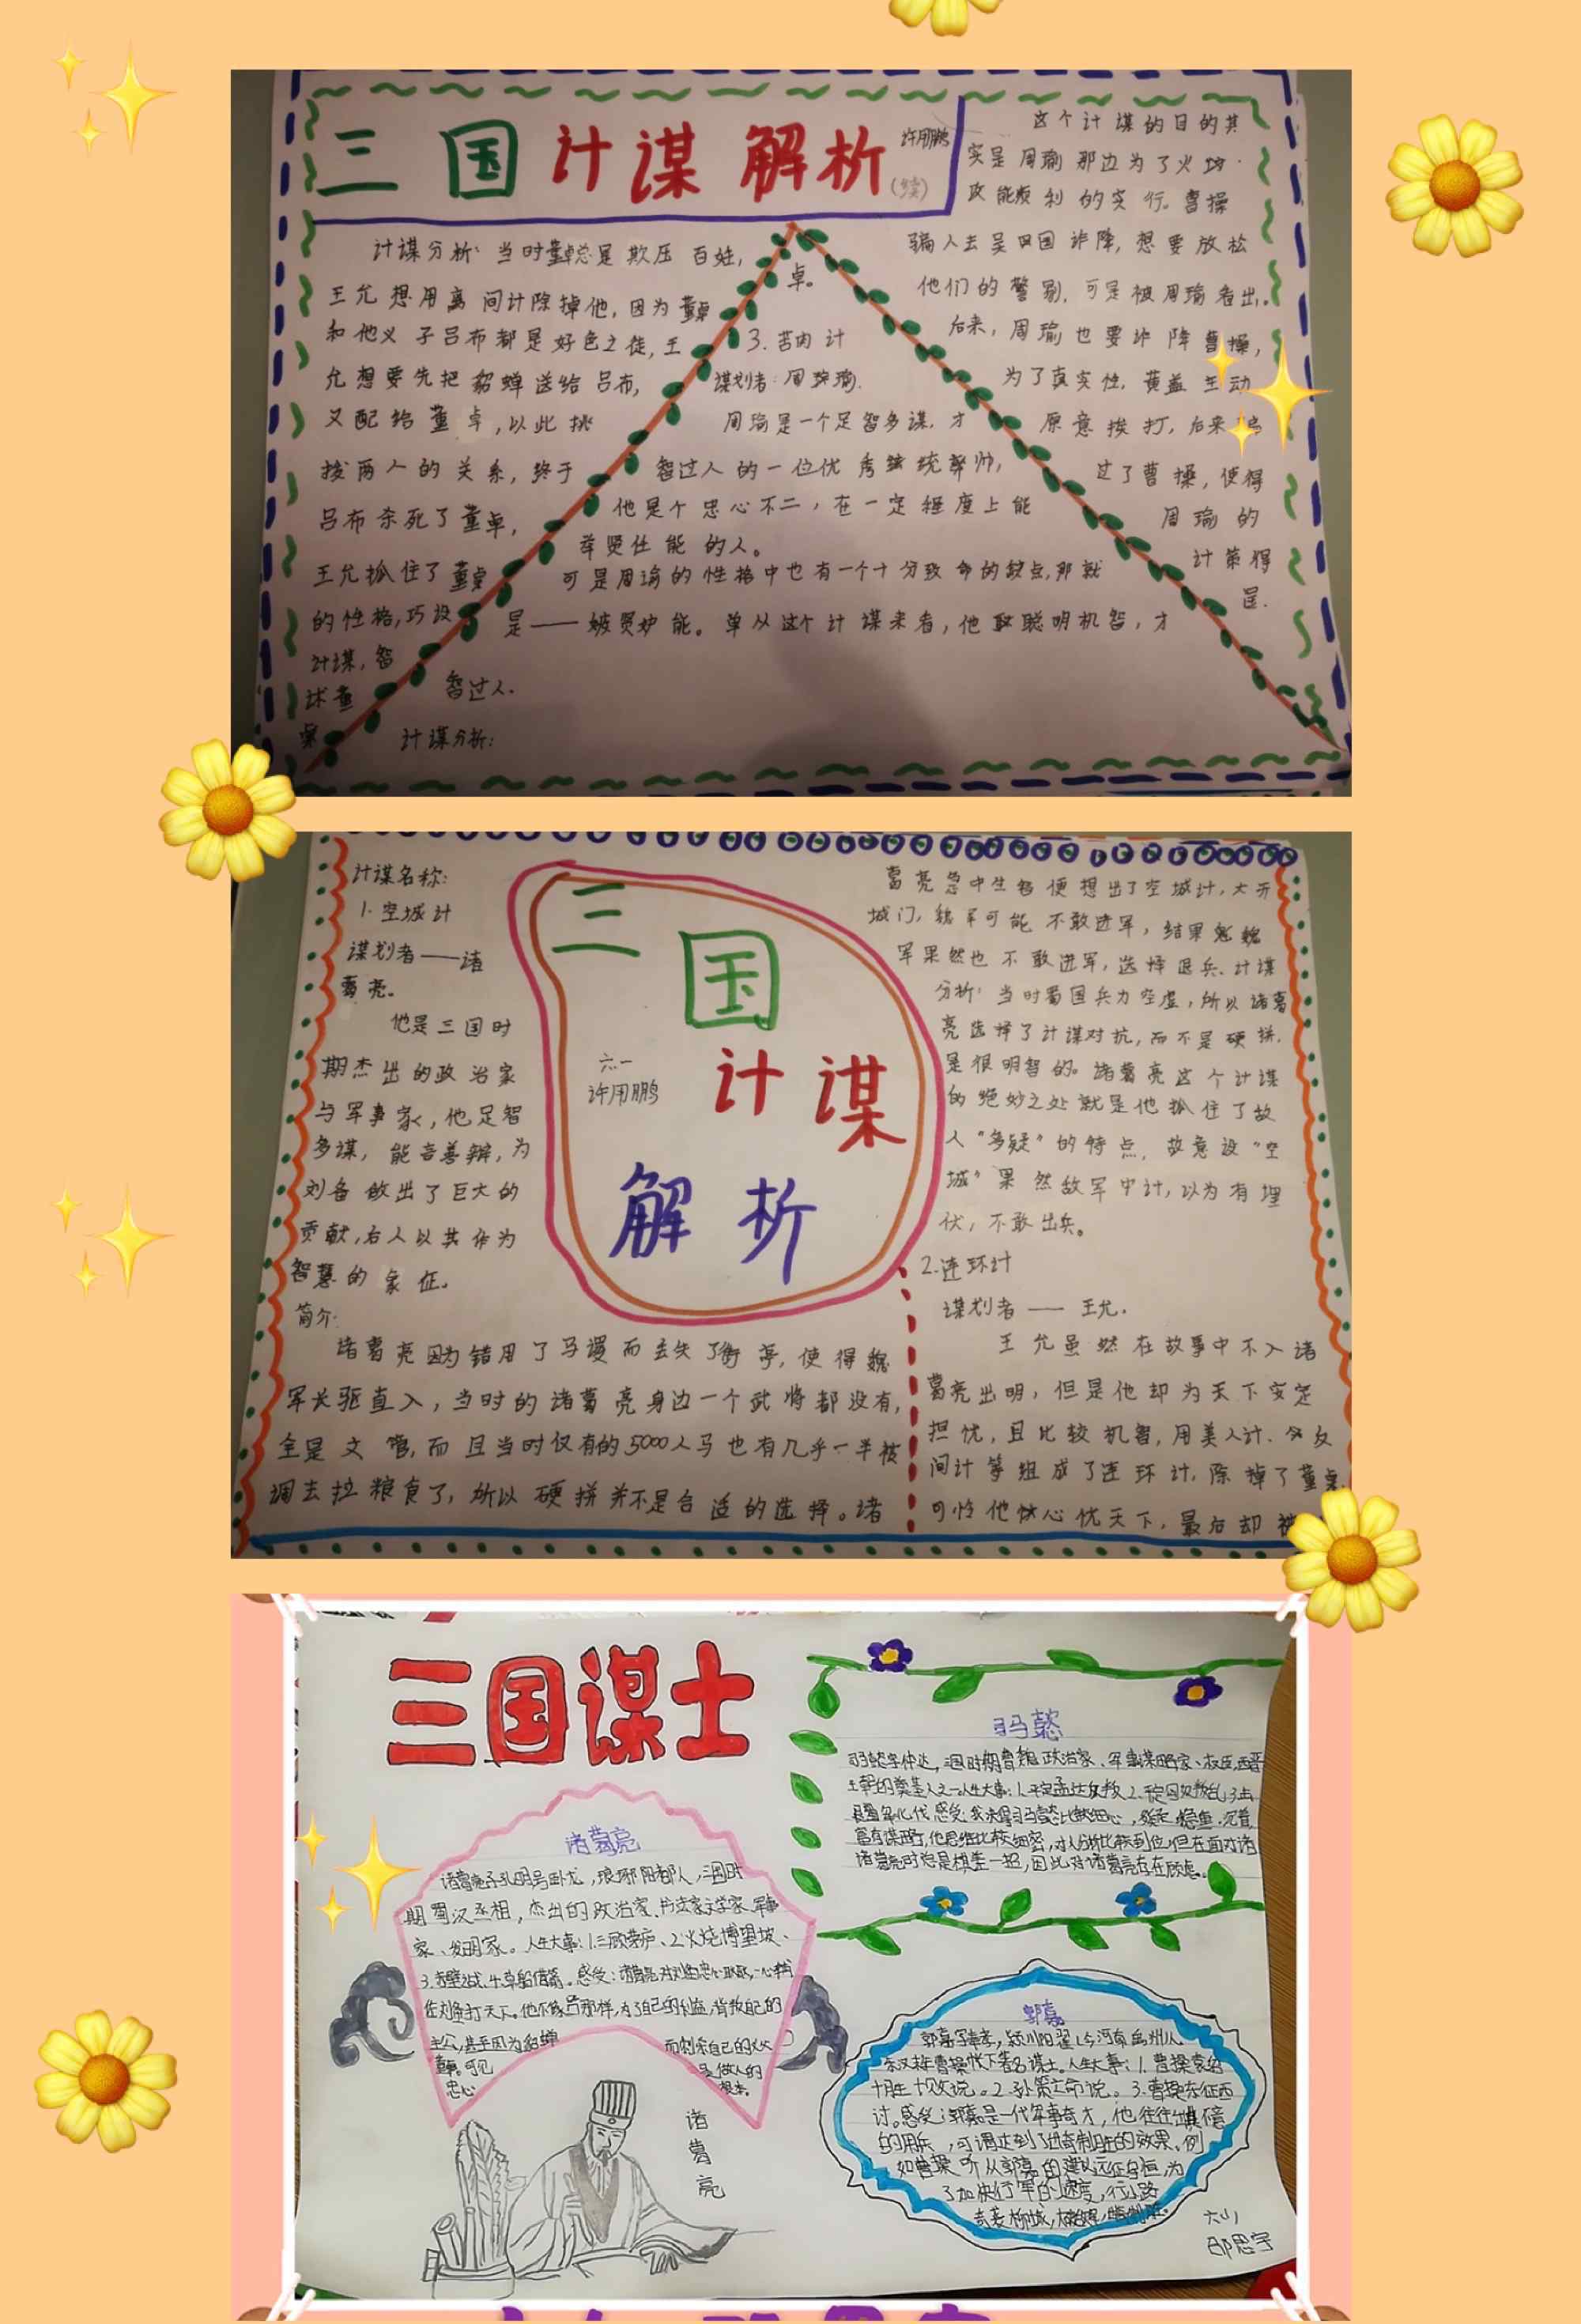 三国计谋解析
(续)
许用鹏
计谋分析:当时董卓总是欺压百姓,
王允想用离间计除掉他,因为董卓
和他义子吕布都是好色之徒,王
允想要先把貂蝉送给吕布,
又配给董卓,以此挑
拨两人的关系,终于
吕布杀死了董卓,
王允抓住了董卓
的性格,巧设
计谋,智
卓。
3.苦肉计
谋划者:周瑜
周瑜是一个足智多谋,才
智过人的一位优秀统帅,
他是个忠心不二,在一定程度上能
举贤任能的人。
可是周瑜的性格中也有一个十分致命的缺点,那就
是——嫉贤妒能。单从这个计谋来看,他聪明机智,才
智过人.
计谋分析:
这个计谋的目的其
实是周瑜那边为了火攻
能顺利的实行。曹操
骗人去吴国诈降,想要放松
他们的警剔,可是被周瑜看出。
后来,周瑜也要诈降曹操,
为了真实性,黄盖主动
原意挨打,后来
过了曹操,使得
周瑜的
计策得
逞.
计谋名称:
1.空城计
谋划者——诸
葛亮。
他是三国时
期杰出的政治家
与军事家,他足智
多谋,能言善辩,为
刘备做出了巨大的
贡献,后人以其作为
智慧的象征。
简介:
诸葛亮因为错用了马谡而丢失了街亭,使得魏
军长驱直入,当时的诸葛亮身边一个武将都没有,
全是文官,而且当时仅有的5000人马也有几乎一半被
调去拉粮食了,所以硬拼并不是合适的选择。诸
三国
计谋
解析
六一
许用鹏
葛亮急中生智便想出了空城计,大开
城门,魏军可能不敢进军,结果魏
军果然也不敢进军,选择退兵.计谋
分析:当时蜀国兵力空虚,所以诸葛
亮选择了计谋对抗,而不是硬拼.
是很明智的。诸葛亮这个计谋
的绝妙之处就是他抓住了敌
人“多疑”的特点,故意设“空
城”果然敌军中计,以为有埋
伏,不敢出兵。
2.连环计
谋划者——王允.
王允虽然在故事中不入诸
葛亮出明,但是他却为天下安定
担忧,且比较机智,用美人计、反
间计等组成了连环计,除掉了董卓
可惜他忧心忧天下,最后却被
三国谋士
诸葛亮
诸葛亮字孔明号卧龙,琅琊阳都人,三国时
期蜀汉丞相,杰出的政治家、书法家文学家、军事
家、发明家。人生大事:1.三顾茅庐、2.火烧博望坡、
3.赤壁之战、4.草船借箭。感受:诸葛亮对刘备忠心耿耿,一心帮
住刘备打天下。他不像吕布那样,为了自己的利益,背叛自己的
主公,甚至因为貂蝉 而刺杀自己的义父
董卓。可见 是做人的
忠心 根本。
诸葛亮
司马懿
司马懿字仲达,三国时期曹魏政治家、军事谋略家、权臣,西晋
王朝的奠基人之一人生大事:1.平定孟达反叛2.
感受:我决得司马懿比较细心,稳重,沉着,
富有谋略,他思维比较细密,对人分析比较到位,但在面对诸
诸葛亮时总是棋差一招,因此对诸葛亮存在顾虑。
郭嘉
郭嘉字奉孝,颍川阳翟(今河南禹州)人
东汉末年曹操帐下著名谋士。人生大事:1.曹操袁绍
十胜十败说。2.孙策亡命说。3.曹操东征西
讨。感受:郭嘉是一代军事奇才,他往往出其
的用兵,可谓达到了出奇制胜的效果。例
如曹操听从郭嘉的建议远征乌桓,为
了加快行军的速度,行小路
六(1)
邵思宇